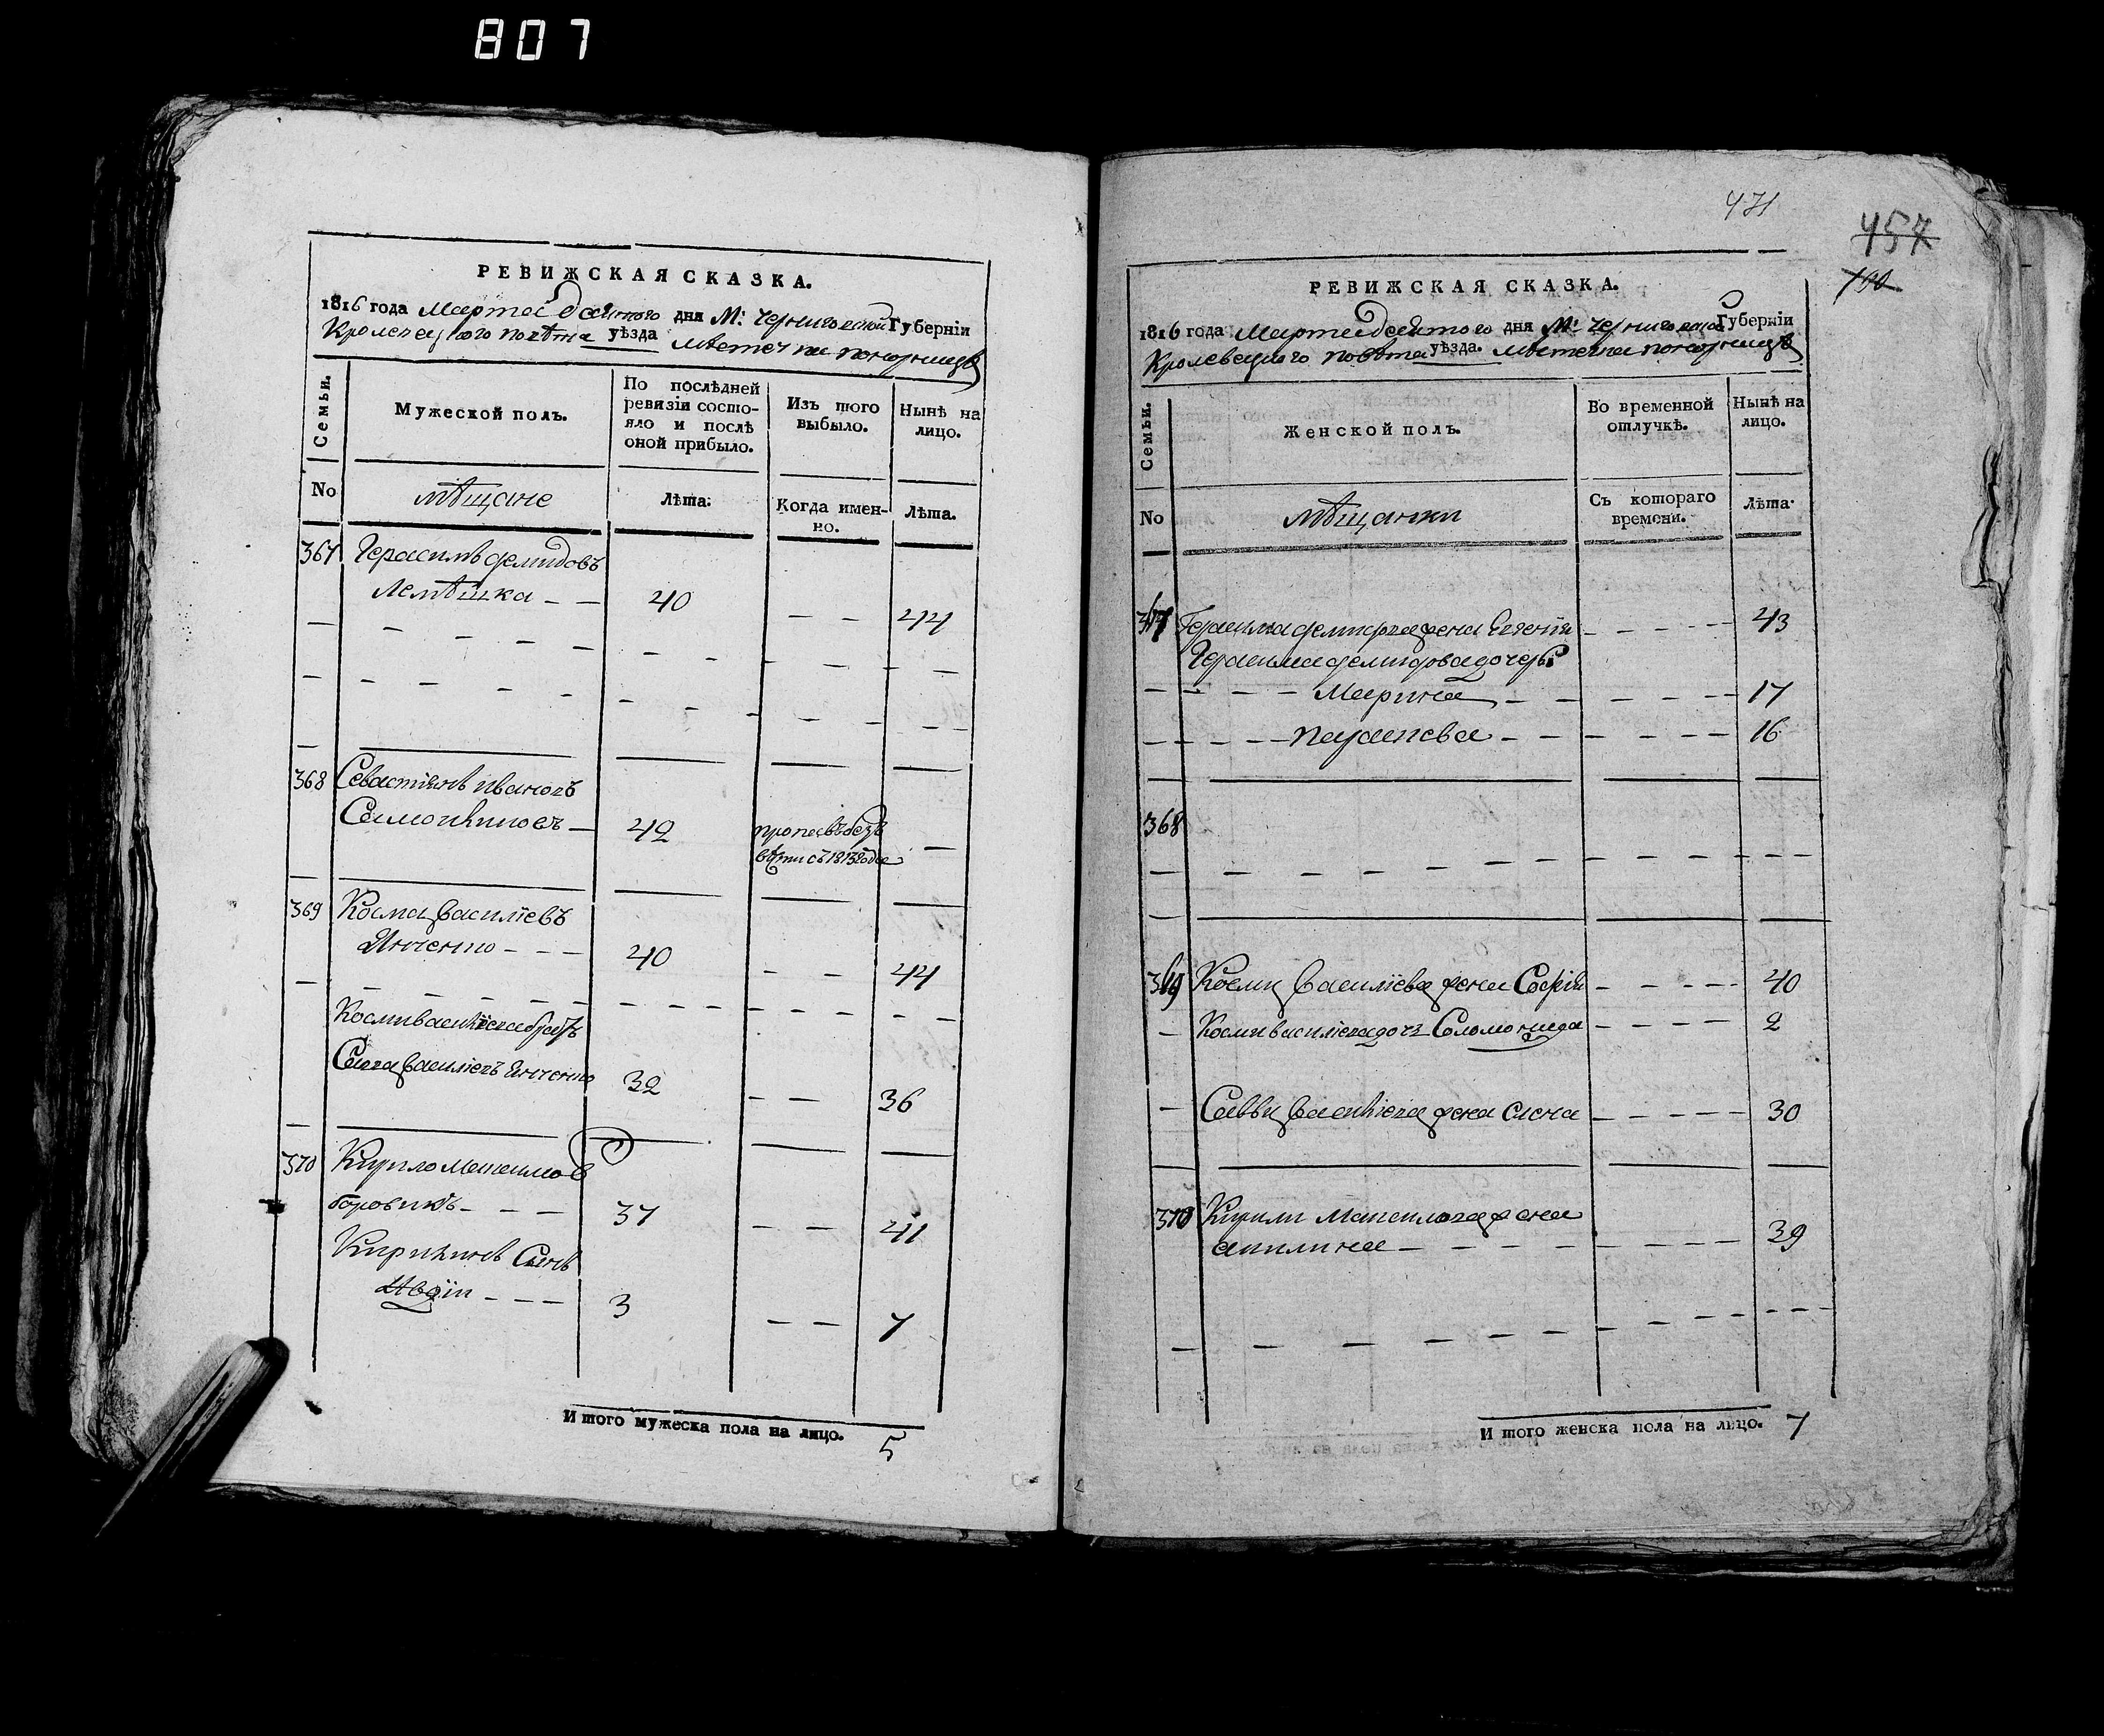 807
РЕВИЖСКАЯ СКАЗКА.
1816 года Марта десятого дня М: Черниговской Губерніи
Кролевецкого повѣта уѣзда мѣстечка понорницѣ
Семьи.
Мужеской полъ.
По послѣдней ревязіи состояло и послѣ оной прибыло.
Изъ того выбыло.
Нынѣ на лицо.
No
мѣщане
Лѣта.
Когда именно.
Лѣта.
367 Герасимъ демидовъ
Лемѣшка 40 44
368 Севастіянъ ивановъ
42 пропавъ безъ
вѣсти съ 1813 года
369 Косма василіевъ
Янченко 40 44
Косми василіева братъ
Сава василіевъ Янченко 32 36
370 Кирило Максимов
боровикъ 37 41
Кирилинъ Синъ
Авдіи 3 7
И того мужеска пола на лицо. 5
471
457
РЕВИЖСКАЯ СКАЗКА.
1816 года Марта десятого дня М: Черниговской Губерніи
Кролевецкого повѣта уѣзда. мѣстечка понорницѣ
Семьи.
Женской полъ.
Во временной отлучкѣ.
Нынѣ на лицо.
No
мѣщанки
Съ котораго времени.
Лѣта
367 Герасима демидова жена Евгенія 43
Герасима демидова дочерѣ
Марина 17
параскева 16
368
369 Косми василіева жена Софія 40
Косми василіева доч Соломонида 2
Савви василіева жена 30
370 Кирили Максимова жена
акилина 39
И того женска пола на лицо. 7